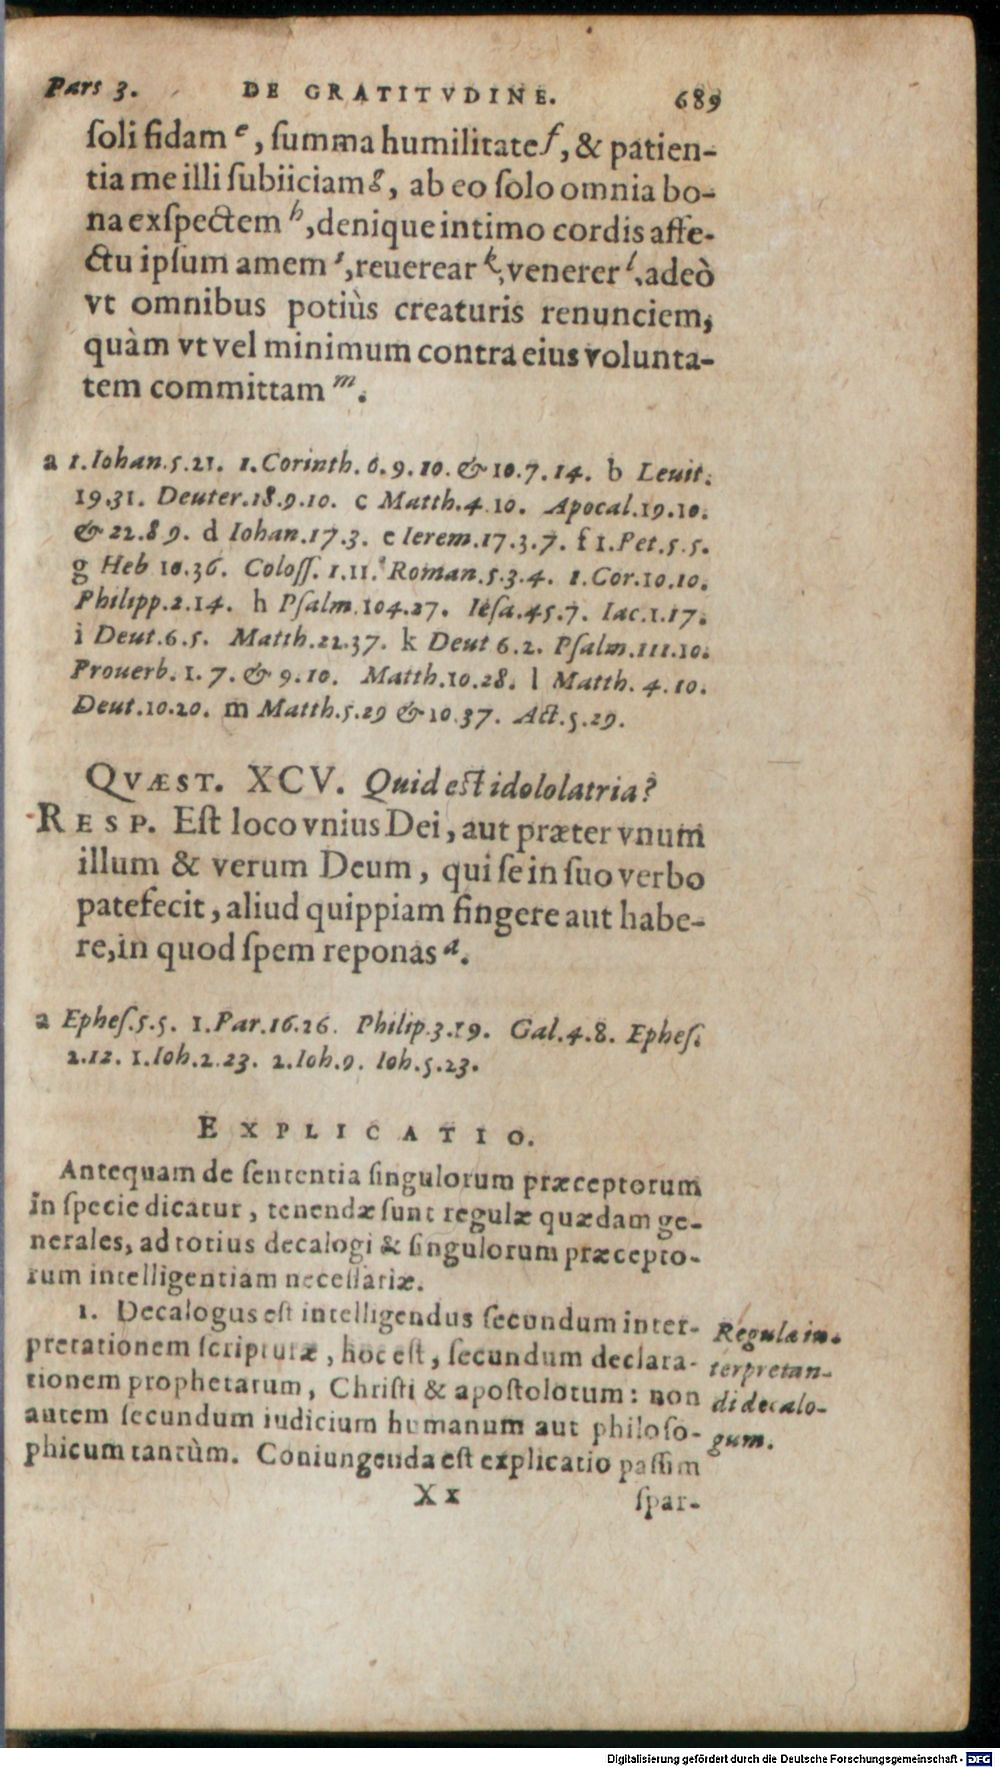 Pars 3. DE GRATITVDINE. 689
ſoli fidam e, ſumma humilitate f, & patien-
tia me illi ſubiiciam g, ab eo ſolo omnia bo-
na exſpectem h, denique intimo cordis affe-
ctu ipſum amem i, reuerear k, venerer l, adeò
vt omnibus potiùs creaturis renunciem,
quàm vt vel minimum contra eius volunta-
tem committam m.
a 1. Iohan. 5. 21. 1. Corinth. 6. 9. 10. & 10. 7. 14. b Leuit.
19. 31. Deuter. 18. 9. 10. c Matth. 4. 10. Apocal. 19. 10.
& 22. 8 9. d Iohan. 17. 3. e Ierem. 17. 3. 7. f 1. Pet. 5. 5.
g Heb 10. 36. Coloſſ. 1. 11. Roman. 5. 3. 4. 1. Cor. 10. 10.
Philipp. 2. 14. h Pſalm. 104. 27. Ieſa. 45. 7. Iac. 1. 17.
i Deut. 6. 5. Matth. 22. 37. k Deut 6. 2. Pſalm. 111. 10.
Prouerb. 1. 7. & 9. 10. Matth. 10. 28. l Matth. 4. 10.
Deut. 10. 20. m Matth. 5. 29 & 10. 37. Act. 5. 29.
QVÆST. XCV. Quid eſt idololatria?
RESP. Eſt loco vnius Dei, aut præter vnum
illum & verum Deum, qui ſe in ſuo verbo
patefecit, aliud quippiam fingere aut habe-
re, in quod ſpem reponas a.
a Epheſ. 5. 5. 1. Par. 16. 26. Philip. 3. 19. Gal. 4. 8. Epheſ.
2. 12. 1. Ioh. 2. 23. 2. Ioh. 9. Ioh. 5. 23.
EXPLICATIO.
Antequam de ſententia ſingulorum præceptorum
in ſpecie dicatur, tenendæ ſunt regulæ quædam ge-
nerales, ad totius decalogi & ſingulorum præcepto-
rum intelligentiam neceſſariæ.
1. Decalogus eſt intelligendus ſecundum inter-
pretationem ſcripturæ, hoc eſt, ſecundum declara-
tionem prophetarum, Chriſti & apoſtolorum: non
autem ſecundum iudicium humanum aut philoſo-
phicum tantùm. Coniungenda eſt explicatio paſſim
Regula in-
terpretan-
di decalo-
gum.
Xx ſpar-
Digitalisierung gefördert durch die Deutsche Forschungsgemeinschaft - DFG